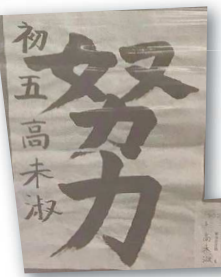 努力
初五 高未淑